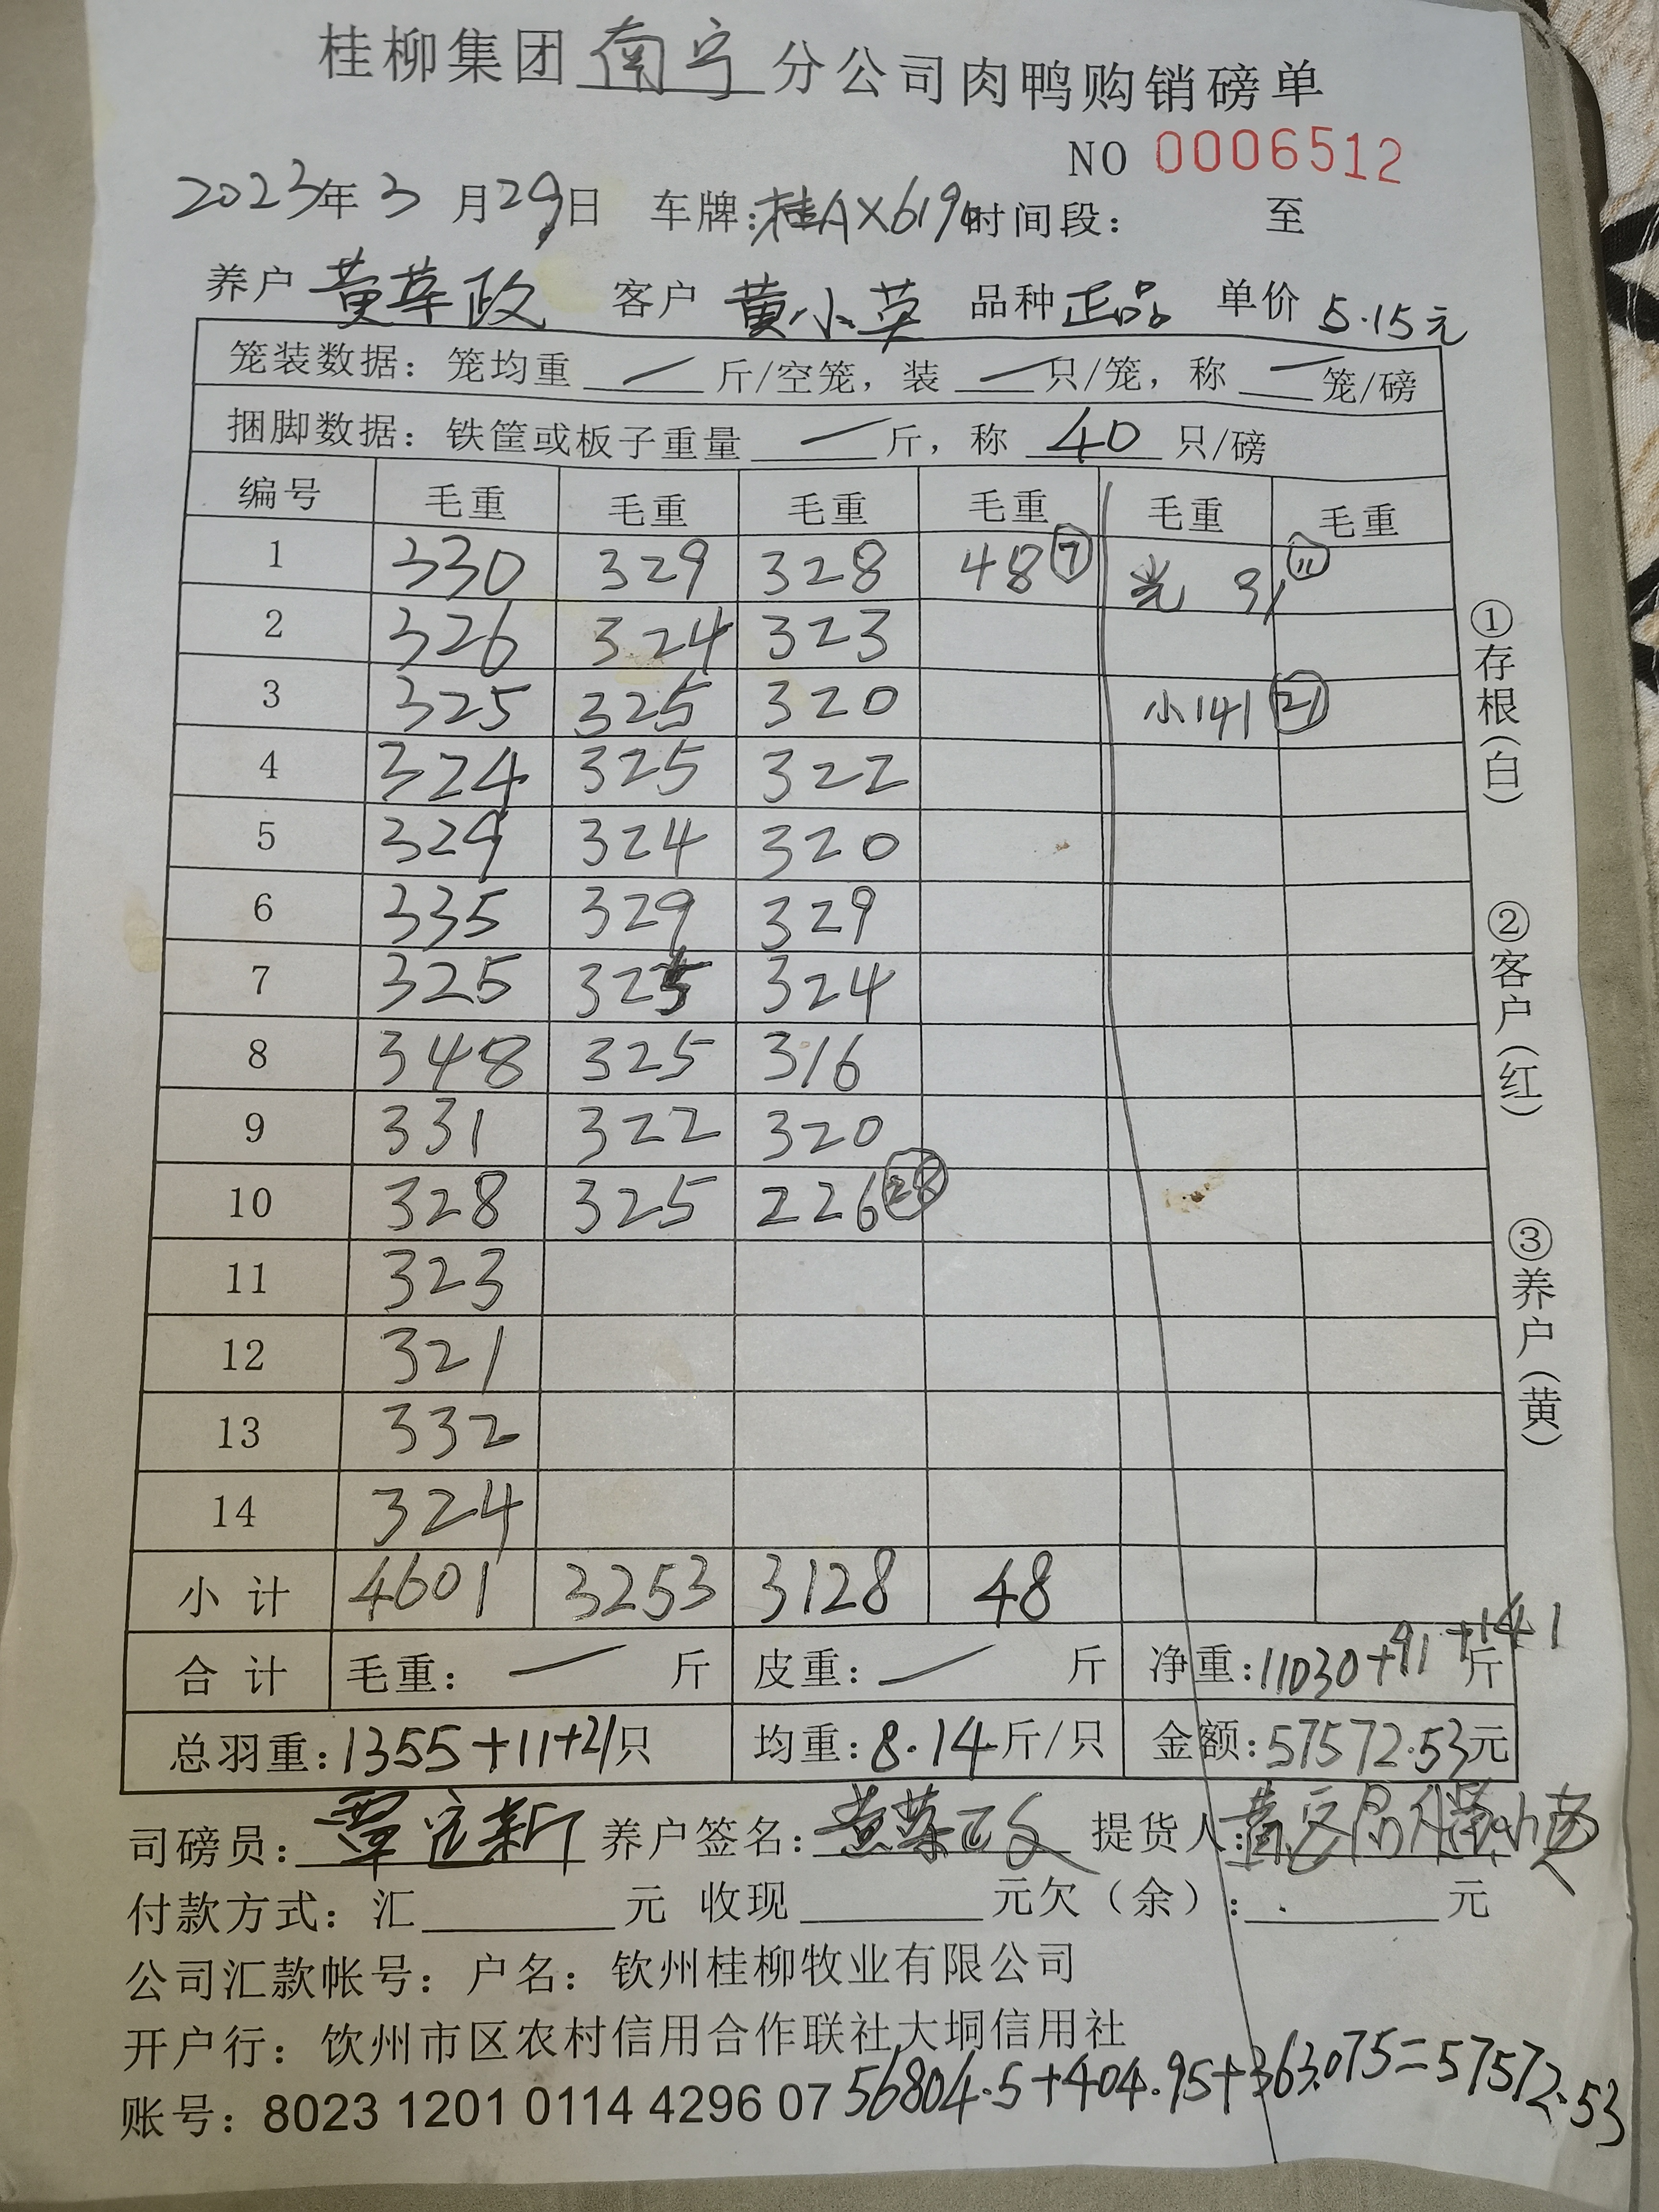 桂柳集团南宁分公司肉鸭购销磅单
NO 0006512
2023年3月29日 车牌:桂AX619 时间段: 至
养户 黄荣政 客户 黄小英 品种 正品 单价 5.15元
笼装数据: 笼均重 — 斤/空笼, 装 — 只/笼, 称 — 笼/磅
捆脚数据: 铁筐或板子重量 — 斤, 称 40 只/磅
编号 毛重 毛重 毛重 毛重 毛重 毛重
1 330 329 328 48 ⑦ 光 91 ⑪
2 326 324 323
3 325 325 320 小141 ㉑
4 324 325 322
5 329 324 320
6 335 329 329
7 325 325 324
8 348 325 316
9 331 322 320
10 328 325 226 ㉘
11 323
12 321
13 332
14 324
小计 4601 3253 3128 48
合计 毛重: — 斤 皮重: — 斤 净重:11030+91+141斤
总羽重:1355+11+21只 均重:8.14斤/只 金额:57572.53元
司磅员: 覃定新 养户签名: 黄荣政 提货人:
付款方式: 汇 元 收现 元欠(余): 元
公司汇款帐号: 户名: 钦州桂柳牧业有限公司
开户行: 钦州市区农村信用合作联社大垌信用社
账号: 8023 1201 0114 4296 07
56804.5+404.95+363.075=57572.53
①存根(白)
②客户(红)
③养户(黄)